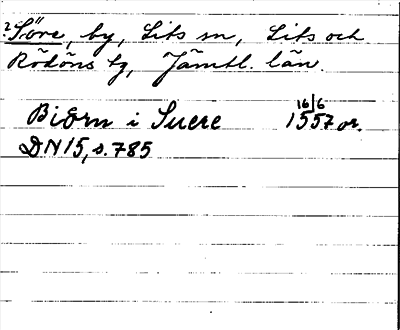 ? Söre, by, Lits sn, Lits och
Rödöns tg, Jämtl. län.
Biörn i Suere 16/6 1557 or.
DN 15, s. 785